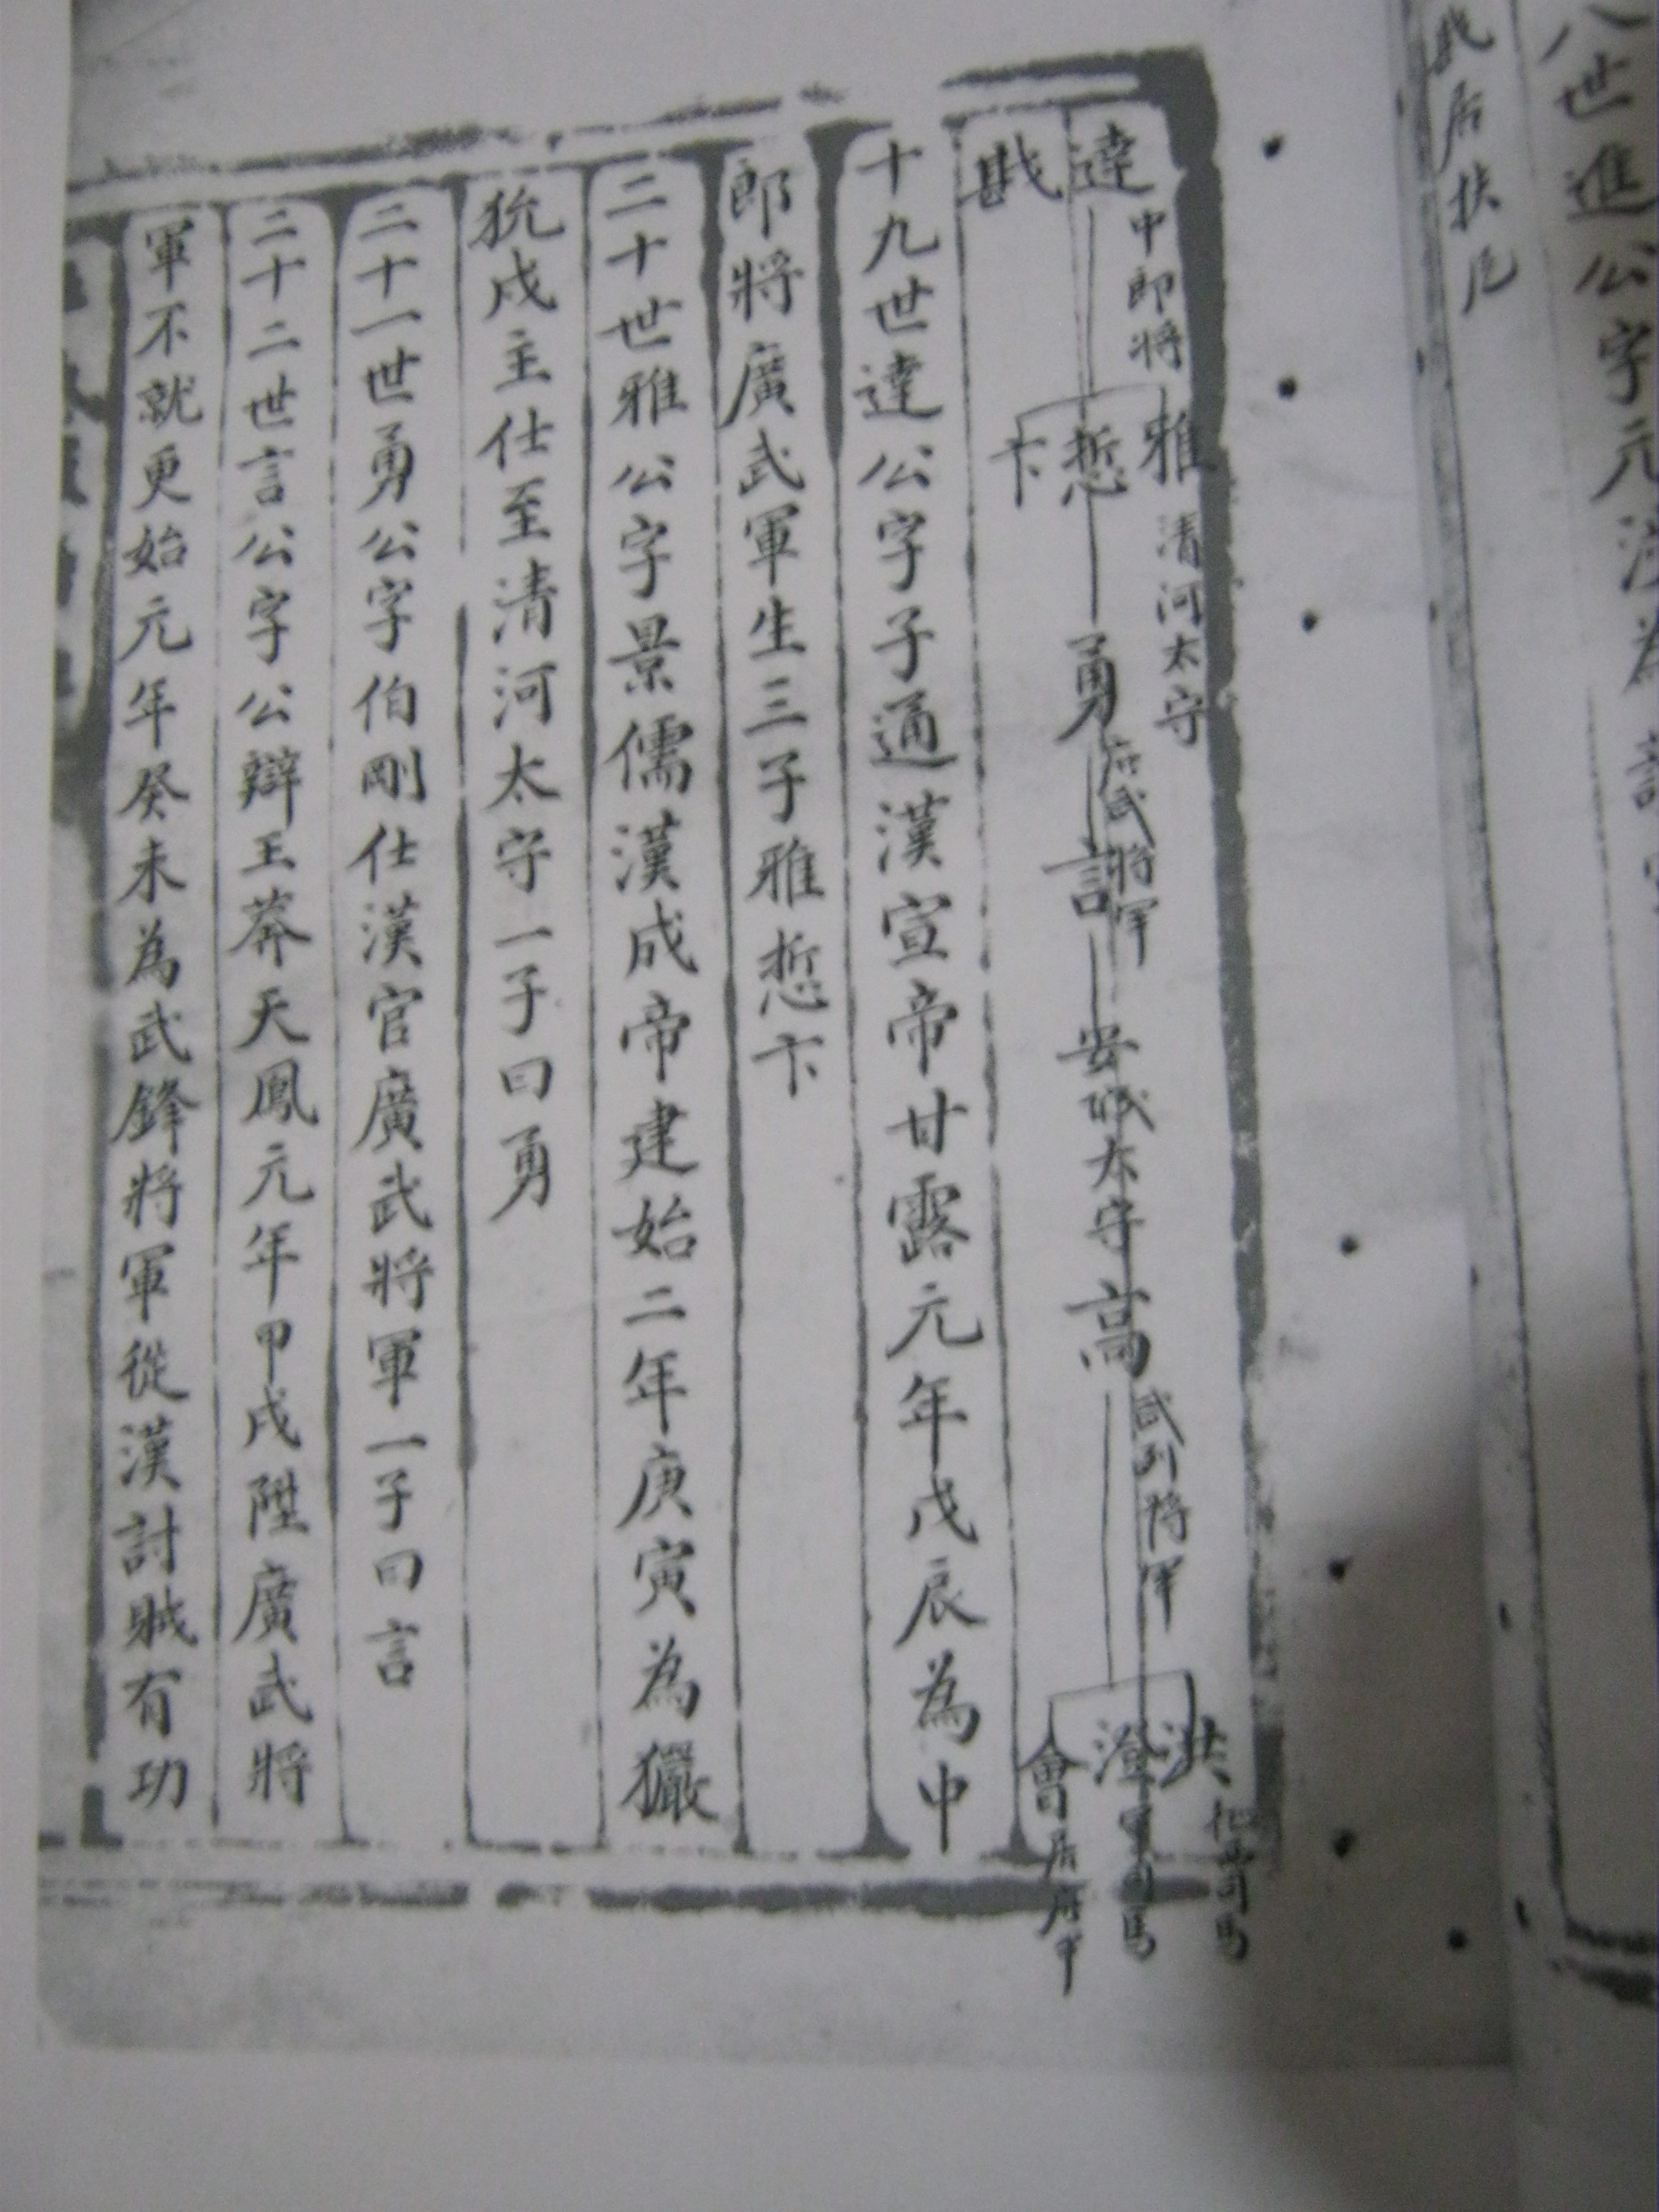 八世進公字元
戡居扶
達中郎將雅清河太守
悊勇言安城太守高武列將軍洪
澄軍司馬
戡卞會居
十九世達公字子通漢宣帝甘露元年戊辰為中
郎將廣武軍生三子雅悊卞
二十世雅公字景儒漢成帝建始二年庚寅為玁
狁戍主仕至清河太守一子曰勇
二十一世勇公字伯剛仕漢官廣武將軍一子曰言
二十二世言公字公辯王莽天鳳元年甲戌陞廣武將
軍不就更始元年癸未為武鋒將軍從漢討賊有功